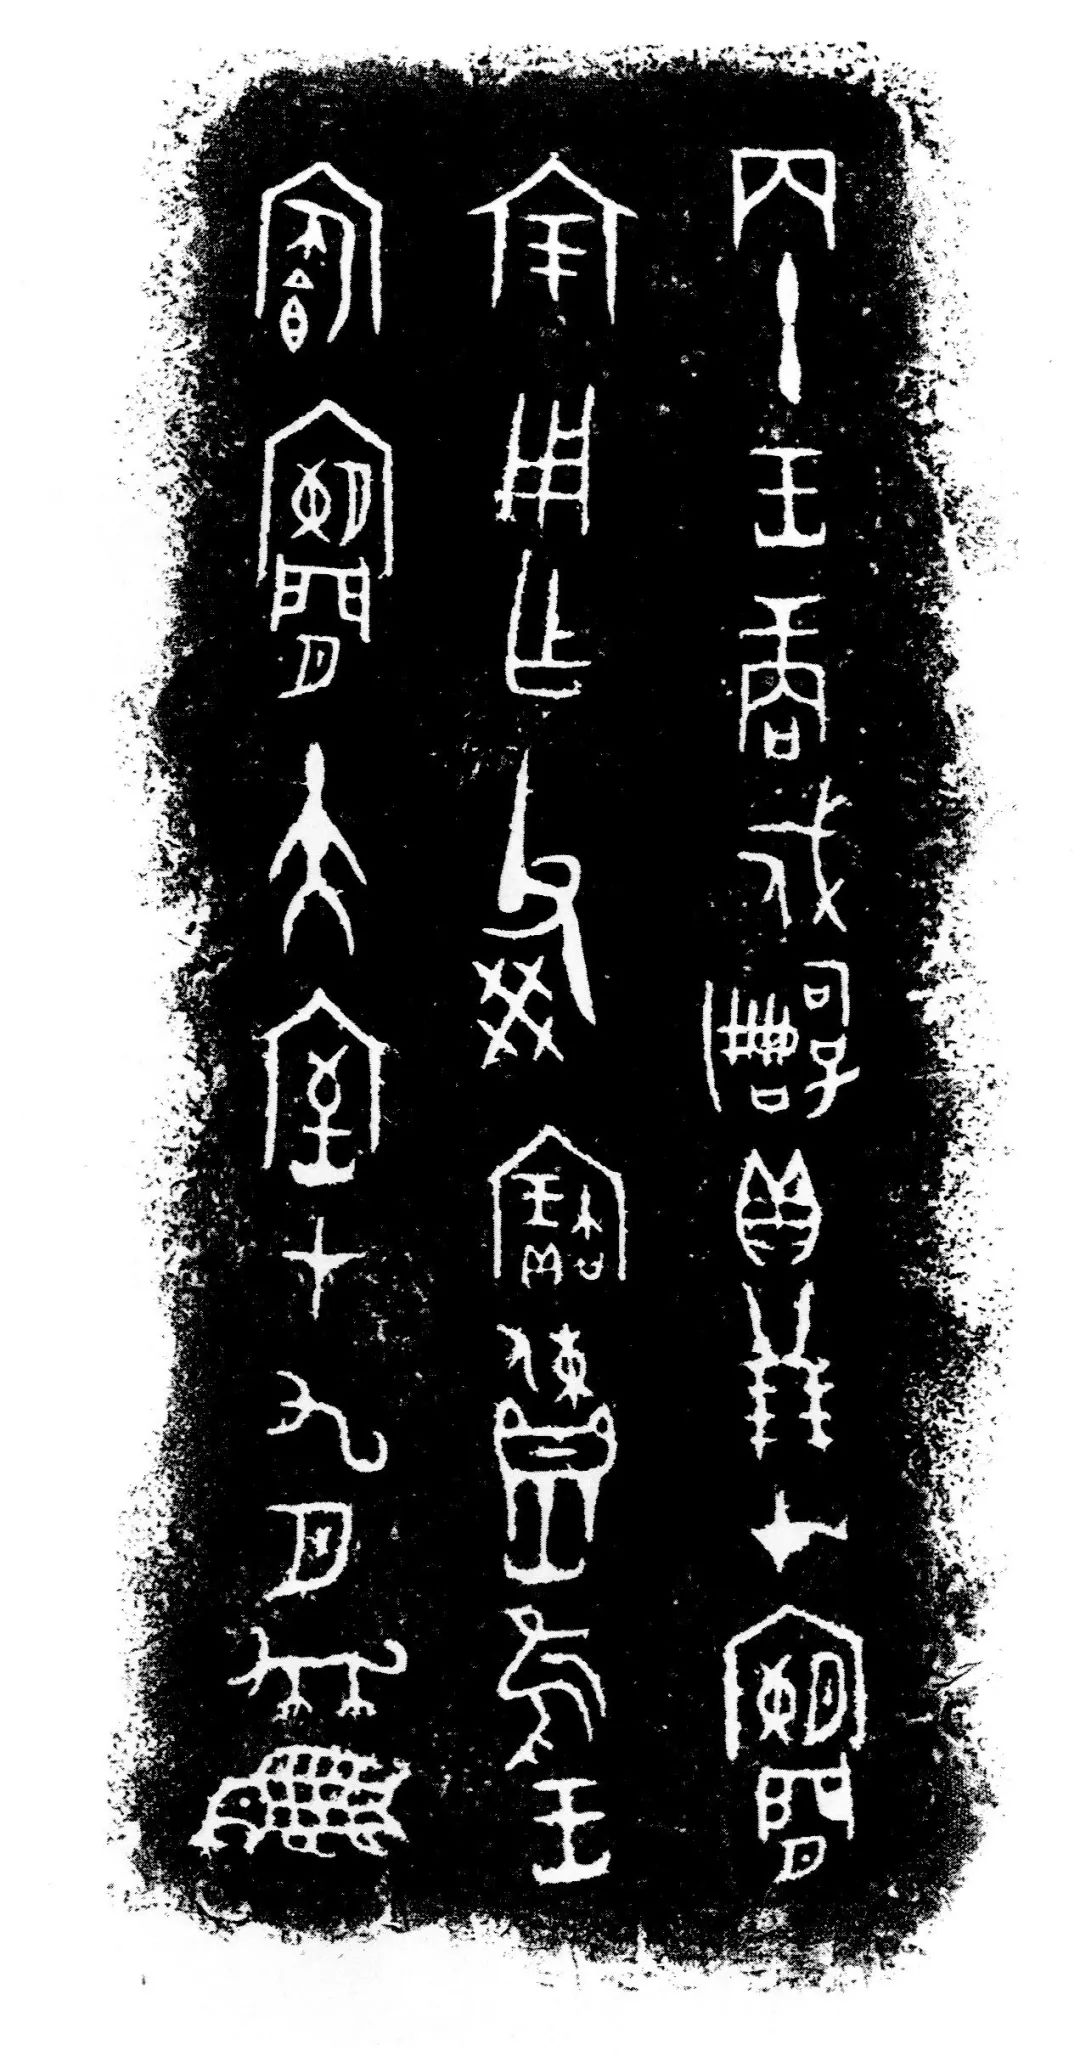 丙午王商戍嗣子貝廿朋才闌
宗用乍父癸寶餗隹王
闌大室才九月犬魚